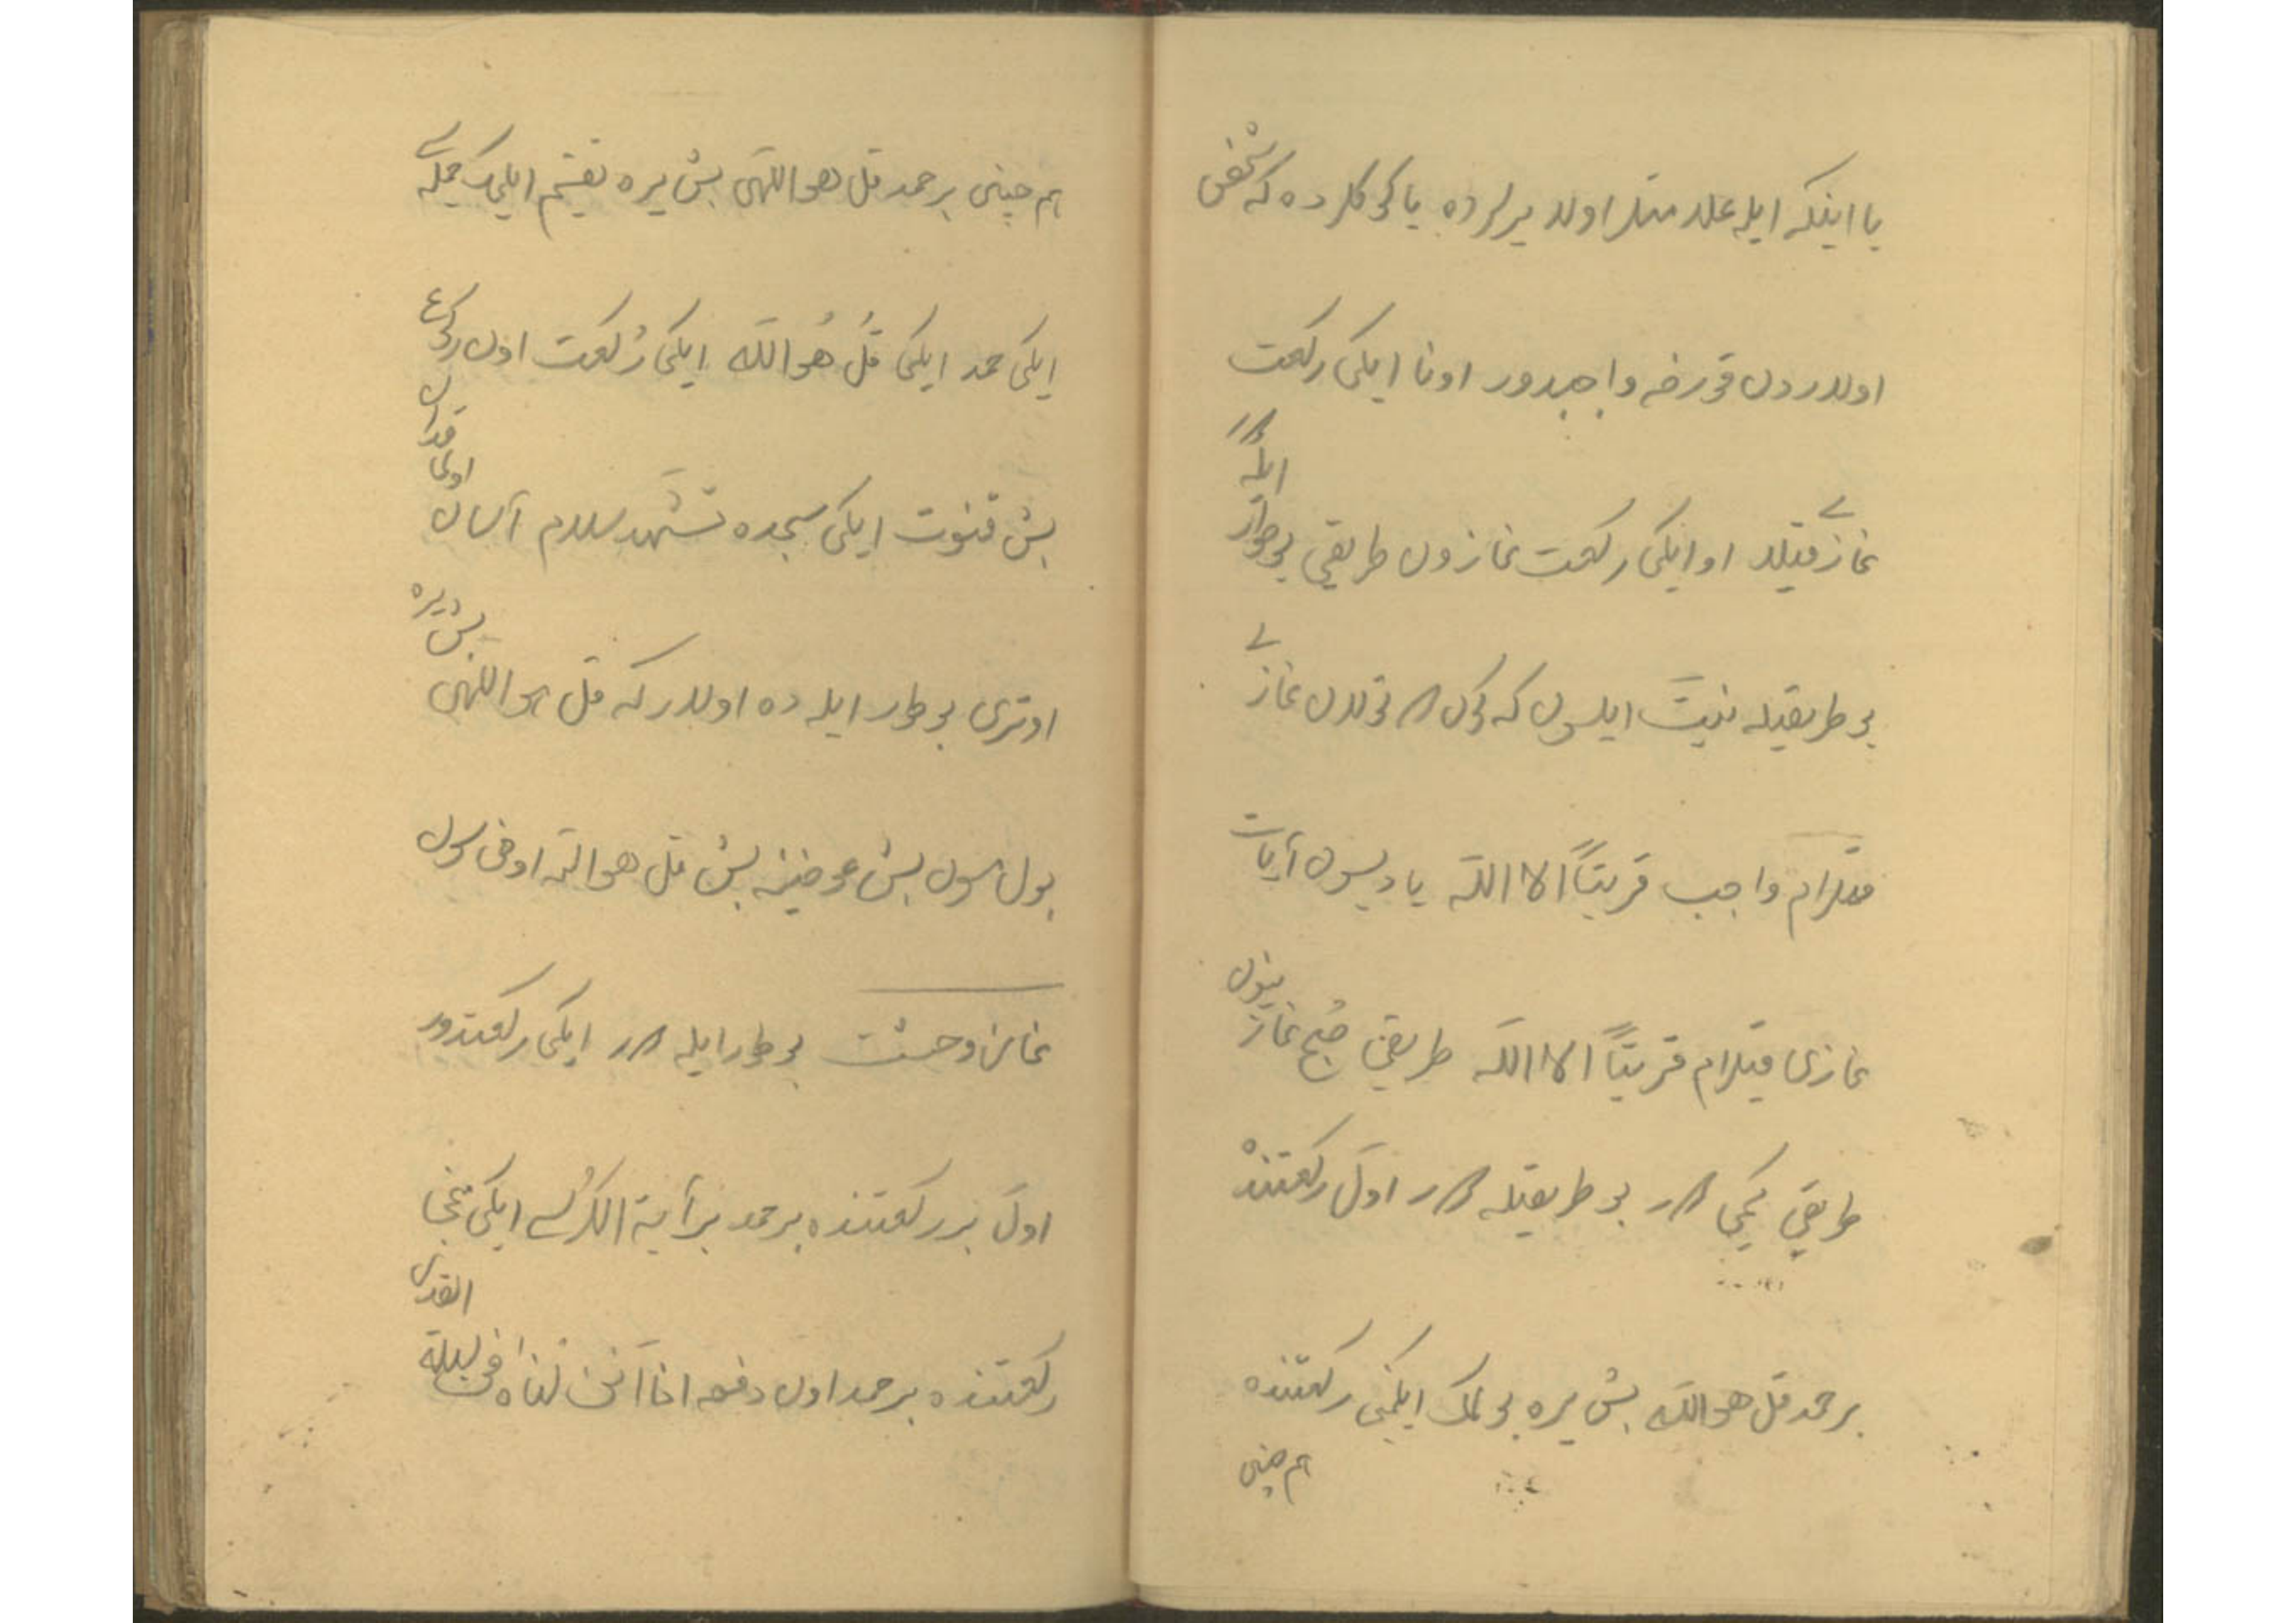 یا اینکه ایله علامتلر اولا یرلرده یا کوکلرده که شخص
اولاردن قورخه واجبدور اونا ایکی رکعت
نمازی قیلا او ایکی رکعت نمازون طریقی بو طور ایله در
بو طریقیله نیت ایلسون که کون در توتولدن نمازی
قیلرام واجب قربتاً الا الله یا دیسون آیات
نمازی قیلرام قربتاً الا الله طریقی صُبح نمازینون
طریقی کیمی در بو طریقیله در اول رکعتنده
بر حمد قل هو الله بش یره بولمک ایکمنجی رکعتنده
هم چنین
هم چنین بر حمد قل هو اللهی بش یره تقسیم ایلمک جمله سی
ایکی حمد ایکی قُل هُو الله ایکی رکعت اون رکوع
بش قنوت ایکی سجده تشهد سلام آسان اولماقدان
اوتری بو طور ایله ده اولار که قل هو اللهی بش یره
بولسون بش عوضینه بش قل هو الله اوخوسون
نماز وحشت بو طور ایله در ایکی رکعتدور
اول بر رکعتنده بر حمد بر آیة الکرسی ایکی نجی
رکعتنده بر حمد اون دفعه انا انزلناه فی لیلة القدر